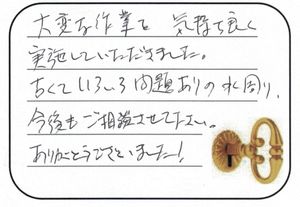 大変な作業を 気持ち良く
実施していただきました。
古くていろいろ問題ありの水周り、
今後もご相談させて下さい。
ありがとうございました！